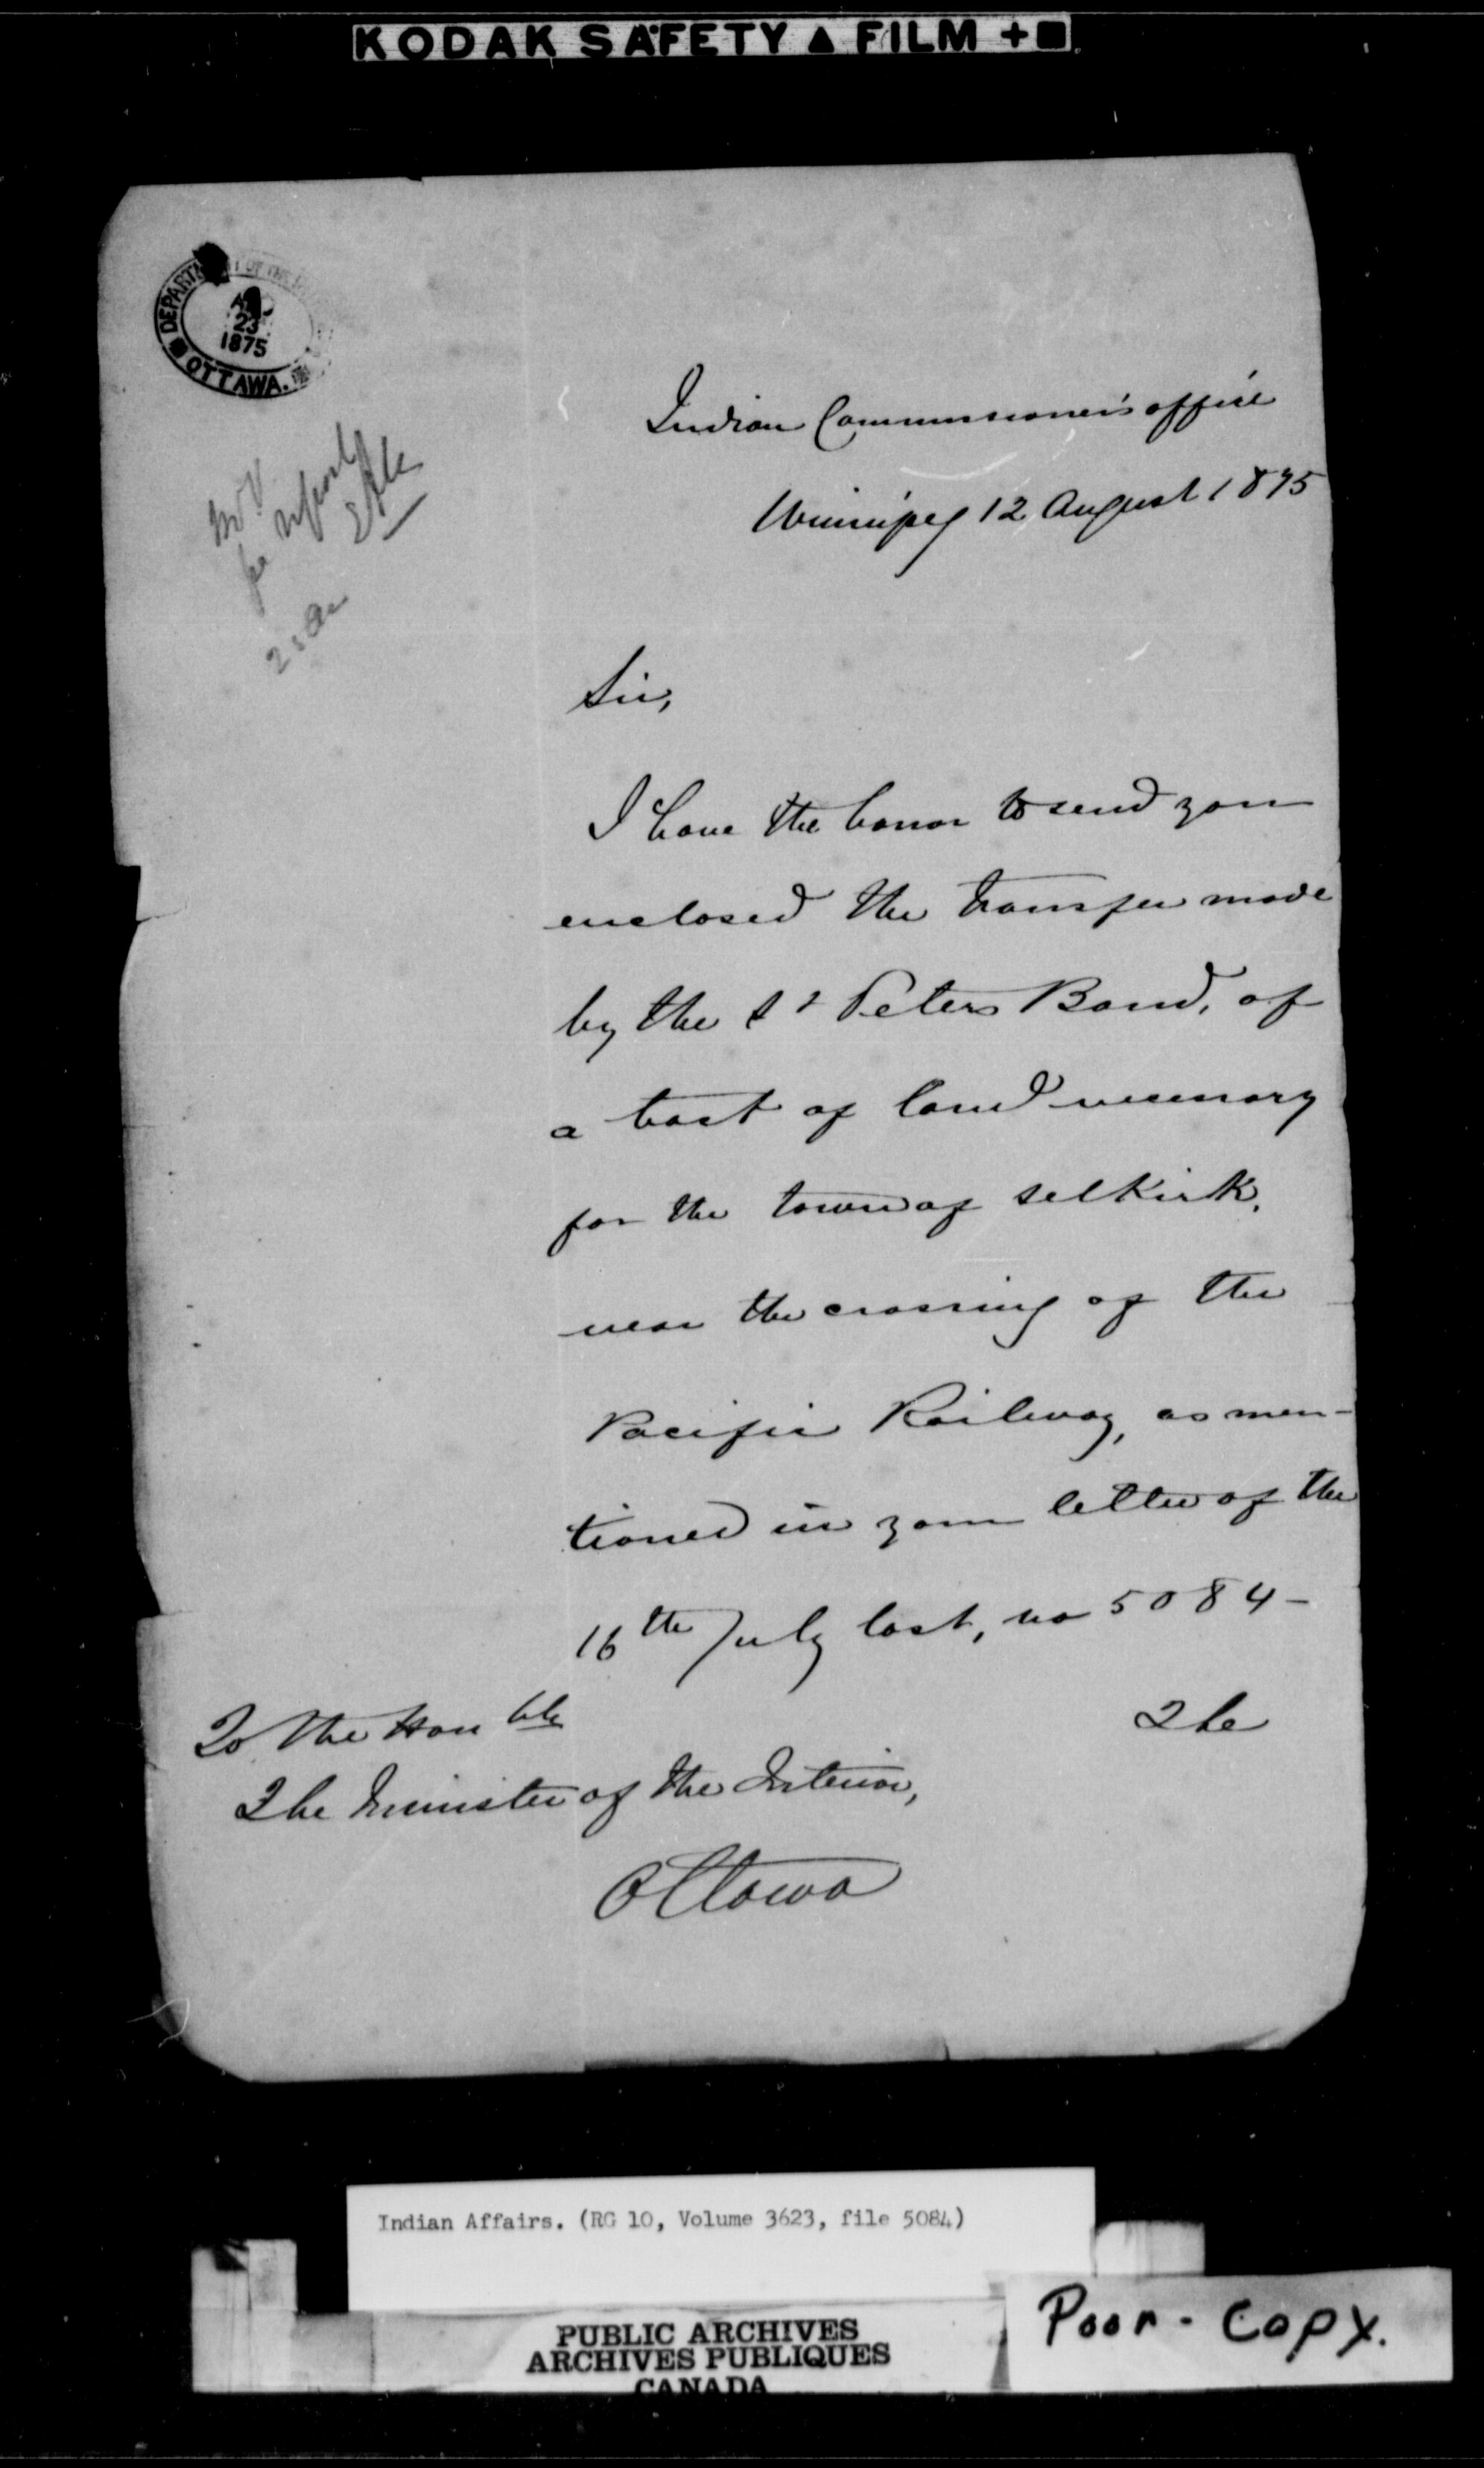 KODAK SAFETY ▲ FILM + ■
DEPARTMENT OF THE
23
1875
OTTAWA.
Indian Commissioner's office
Winnipeg 12 August 1875
for report
Sir,
I have the honor to send you
enclosed the transfer made
by the St Peters Band, of
a tract of land necessary
for the town of Selkirk,
near the crossing of the
Pacific Railway, as men-
tioned in your letter of the
16th July last, no 5084 -
The
To the Honble
The Minister of the Interior,
Ottawa
Indian Affairs. (RG 10, Volume 3623, file 5084)
PUBLIC ARCHIVES
ARCHIVES PUBLIQUES
CANADA
Poor - Copy.